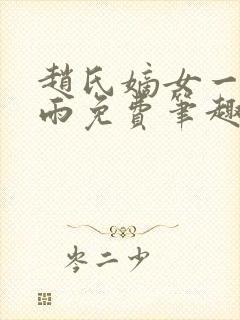 趙氏嫡女一
雨免費筆趣
岑二少